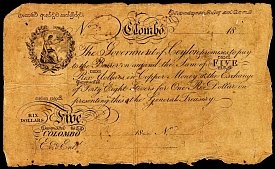 Colombo 18
The Government of Ceylon promises to pay
to the Bearer on demand the Sum of FIVE
Rix Dollars in Copper Money at the Exchange
of Forty Eight Stivers for One Rix Dollar on
presenting this at the General Treasury
RIX
DOLLARS Five
COLOMBO 180 No
Entd